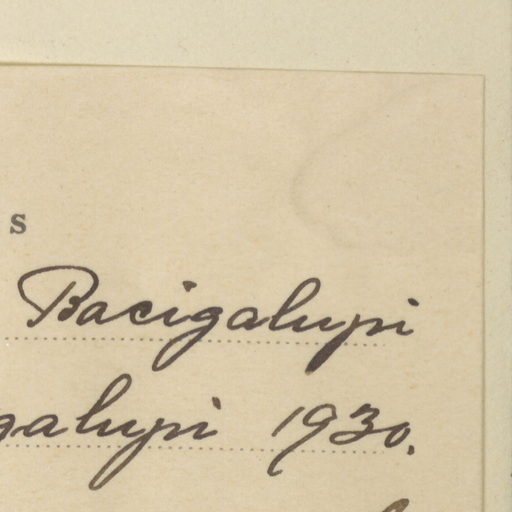 s
Bacigalupi
galupi 1930.